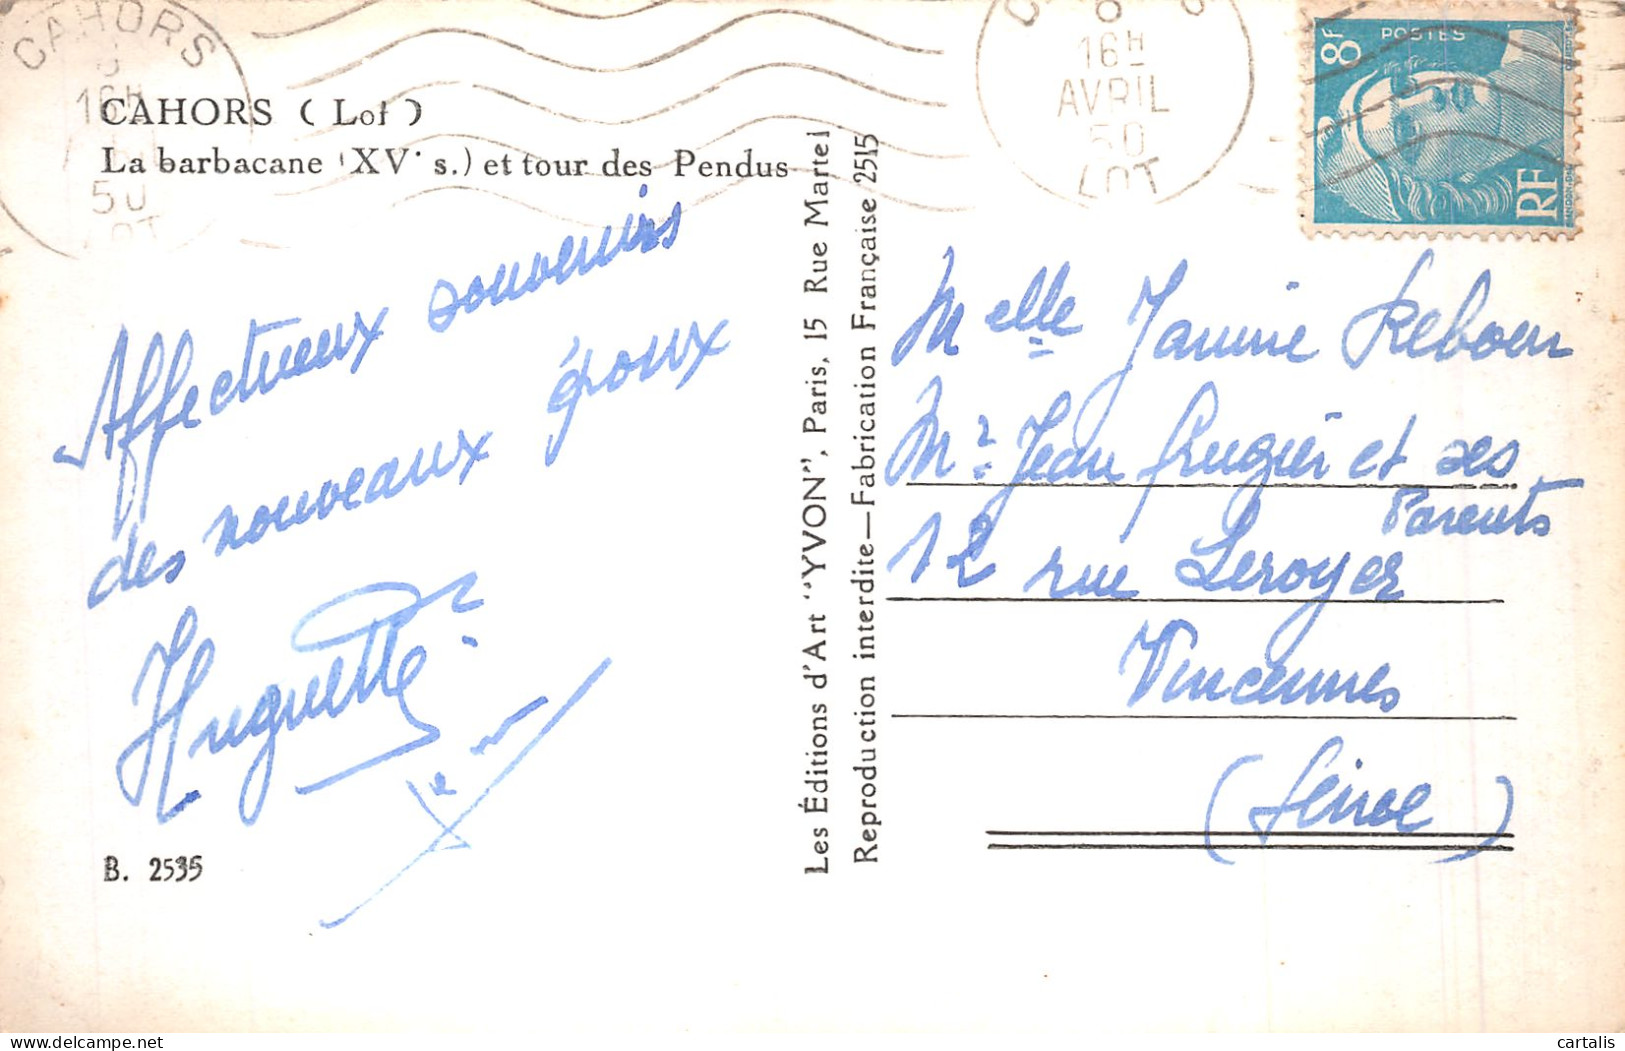 CAHORS
16H
50
LOT
CAHORS (Lot)
La barbacane (XV· s.) et tour des Pendus
Affectueux souvenirs
des nouveaux époux
Huguette
B. 2535
Les Éditions d'Art "YVON", Paris, 15 Rue Martel
Reproduction interdite—Fabrication Française 2515
16H
AVRIL
50
LOT
8F
POSTES
RF
Melle Janine
Mr. Jean Frugier et ses
Parents
12 rue Leroyer
Vincennes
(Seine)
cartalis